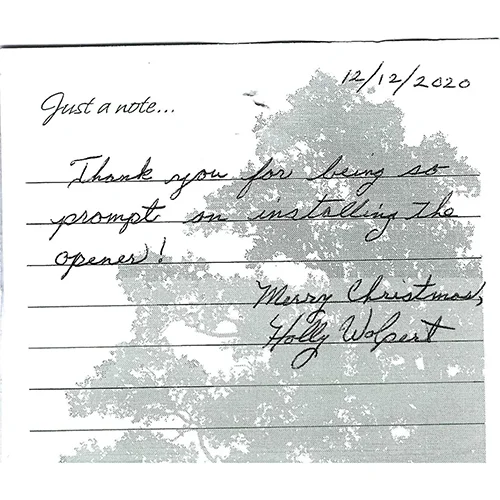 12/12/2020
Just a note...
Thank you for being so
prompt on installing the
opener!
Merry Christmas,
Holly Wolpert